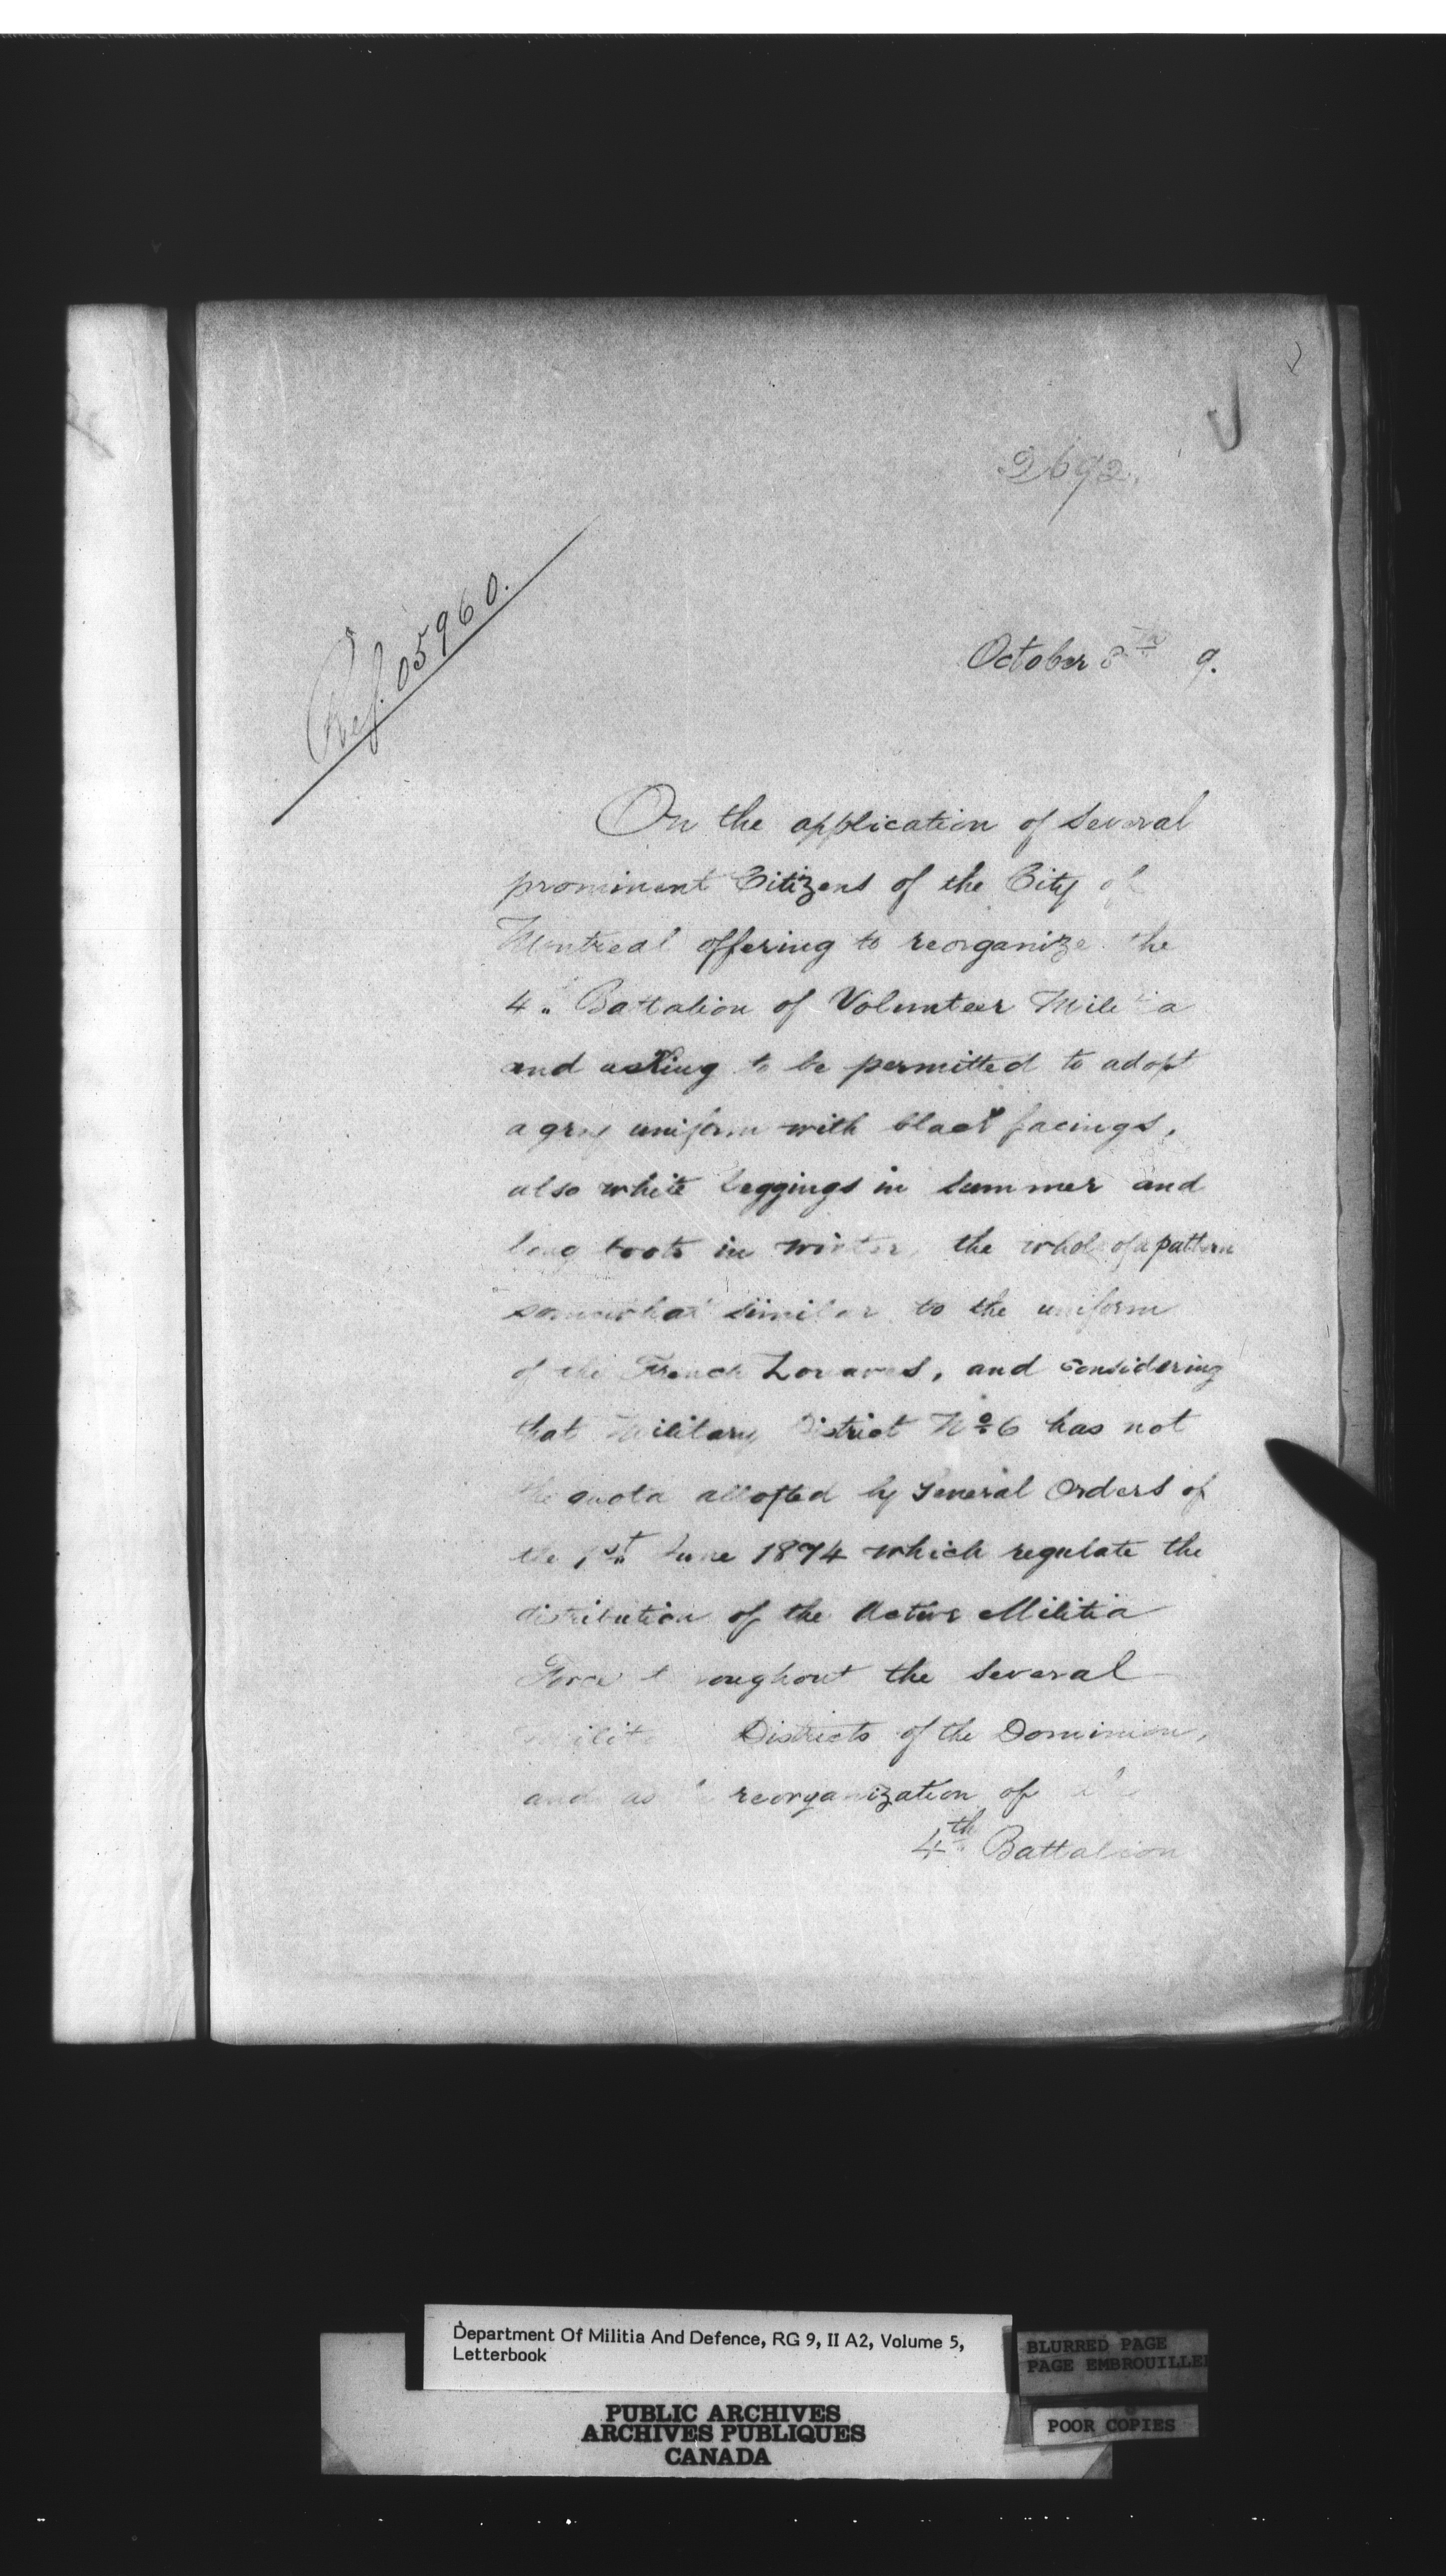 2692.
Ref. 05960.
October 8th 9.
On the application of several
prominent Citizens of the City of
Montreal offering to reorganize the
4" Battalion of Volunteer Militia
and asking to be permitted to adopt
a grey uniform with black facings,
also white leggings in summer and
long boots in winter, the whole of a pattern
somewhat similar to the uniform
of the French Zouaves, and considering
that Military District No 6 has not
the quota allotted by General Orders of
the 1st June 1874 which regulate the
distribution of the Active Militia
Force throughout the several
Districts of the Dominion,
and as reorganization of
4th Battalion
Department Of Militia And Defence, RG 9, II A2, Volume 5,
Letterbook
BLURRED PAGE
PAGE EMBROUILLEE
PUBLIC ARCHIVES
ARCHIVES PUBLIQUES
CANADA
POOR COPIES